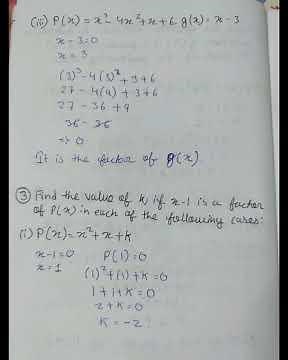 (iii) P(x) = x³ - 4x² + x + 6 g(x) = x - 3
x - 3 = 0
x = 3
(3)³ - 4(3)² + 3 + 6
27 - 4(9) + 3 + 6
27 - 36 + 9
36 - 36
⇒ 0
It is the factor of g(x)
③ Find the value of k, if x-1 is a factor
of P(x) in each of the following cases:
(i) P(x) = x² + x + k
x - 1 = 0 P(1) = 0
x = 1 (1)² + (1) + k = 0
1 + 1 + k = 0
2 + k = 0
k = -2